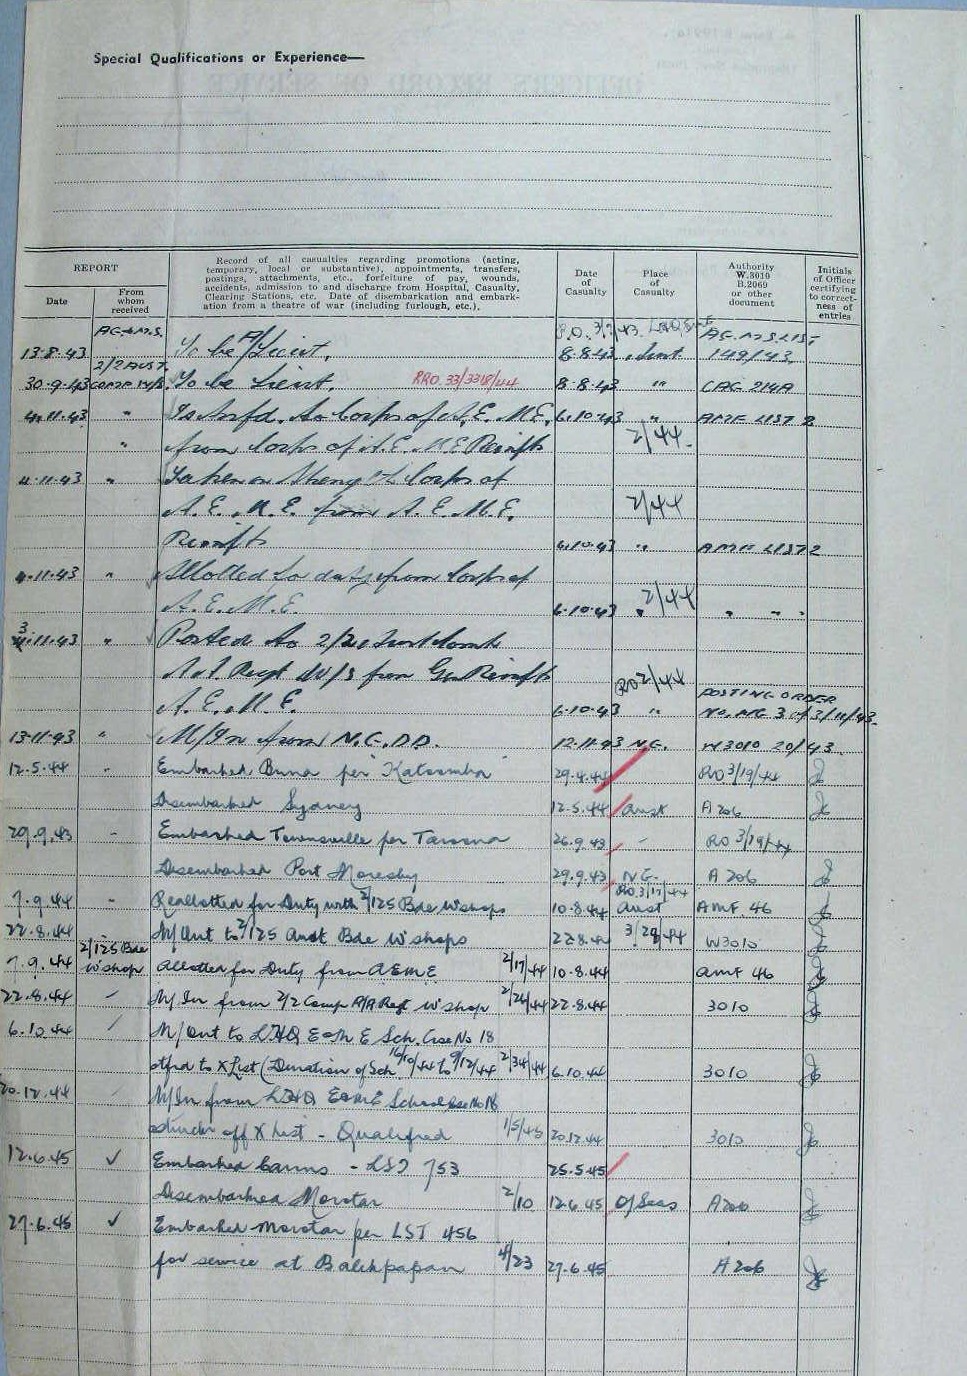 Special Qualifications or Experience—
REPORT
Date
From whom received
Record of all casualties regarding promotions (acting, temporary, local or substantive), appointments, transfers, postings, attachments, etc., forfeiture of pay, wounds, accidents, admission to and discharge from Hospital, Casualty, Clearing Stations, etc. Date of disembarkation and embarkation from a theatre of war (including furlough, etc.).
Date of Casualty
Place of Casualty
Authority W.3010 B.2069 or other document
Initials of Officer certifying to correctness of entries
R.O. 3/7/43
13.8.43 To be A/Lieut. 8.8.43 Aust 149/43
2/2 AUST
30.9.43 To be Lieut. RRO 33/3318/44 8.8.43 " CAG 214A
4.11.43 " Tsfd. to Corps of A.E.M.E. 6.10.43 " AMF LIST 2
" from Corps of A.E.M.E Reinfts 2/44
4.11.43 " Taken on Strength Corps of
A.E.M.E. from A.E.M.E. 2/44
Reinfts 6.10.43 " AMF LIST 2
4.11.43 " Allotted to duty from Corps of
A.E.M.E. 6.10.43 " 2/44 " " "
3.11.43 " Posted to 2/2 Aust Comb
AA Regt W/S from Gen Reinfts RO 2/44 POSTING ORDER
A.E.M.E. 6.10.43 " 3/11/43
13.11.43 " M/In from N.G.D.D. 12.11.43 N.G. W3010 20/43
12.5.44 " Embarked Buna per "Katoomba" 29.4.44 RO 3/19/44
Disembarked Sydney 12.5.44 Aust A206
29.9.43 - Embarked Townsville per Taroona 26.9.43 - RO 3/19/44
Disembarked Port Moresby 29.9.43 N.G. A206
RO 3/17/44
7.9.44 - Reallotted for Duty with 2/125 Bde W'shops 10.8.44 Aust AMF 46
22.8.44 M/Out to 2/125 Aust Bde W'shops 22.8.44 3/28/44 W3010
2/125 Bde
7.9.44 W'shop Allotted for Duty from AEME 2/17/44 10.8.44 AMF 46
22.8.44 M/In from 2/2 Comp A/A Regt W'shop 2/26/44 22.8.44 3010
6.10.44 M/Out to LHQ E & M E Sch. Cse No 18
tfd to X List (Duration of Sch 16/10/44 to 9/12/44 2/34/44 6.10.44 3010
20.12.44 M/In from LHQ E&ME School Cse No 18
struck off X List - Qualified 1/5/45 20.12.44 3010
12.6.45 ✓ Embarked Cairns - LST 753 25.5.45
Disembarked Morotai 2/10 12.6.45 O/Seas A206
27.6.45 ✓ Embarked Morotai per LST 456
for service at Balikpapan 4/23 27.6.45 A206